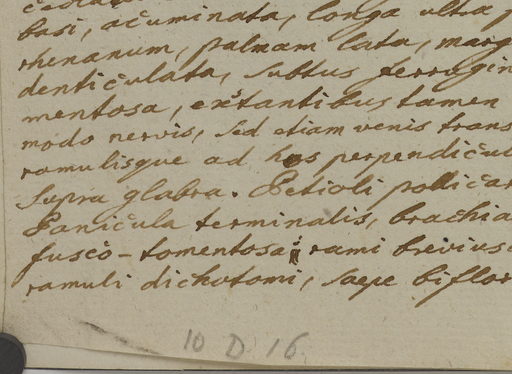 basi, acuminata, longa ultra
rhenanum, palmam lata, marg
denticulata, subtus ferrugin
mentosa, extantibus tamen
modo nervis, sed etiam venis trans
ramulisque ad hos perpendicul
supra glabra. Petioli pollicar
Panicula terminalis, brachia
fusco-tomentosa; rami brevius
ramuli dichotomi, saepe biflor
10 D 16